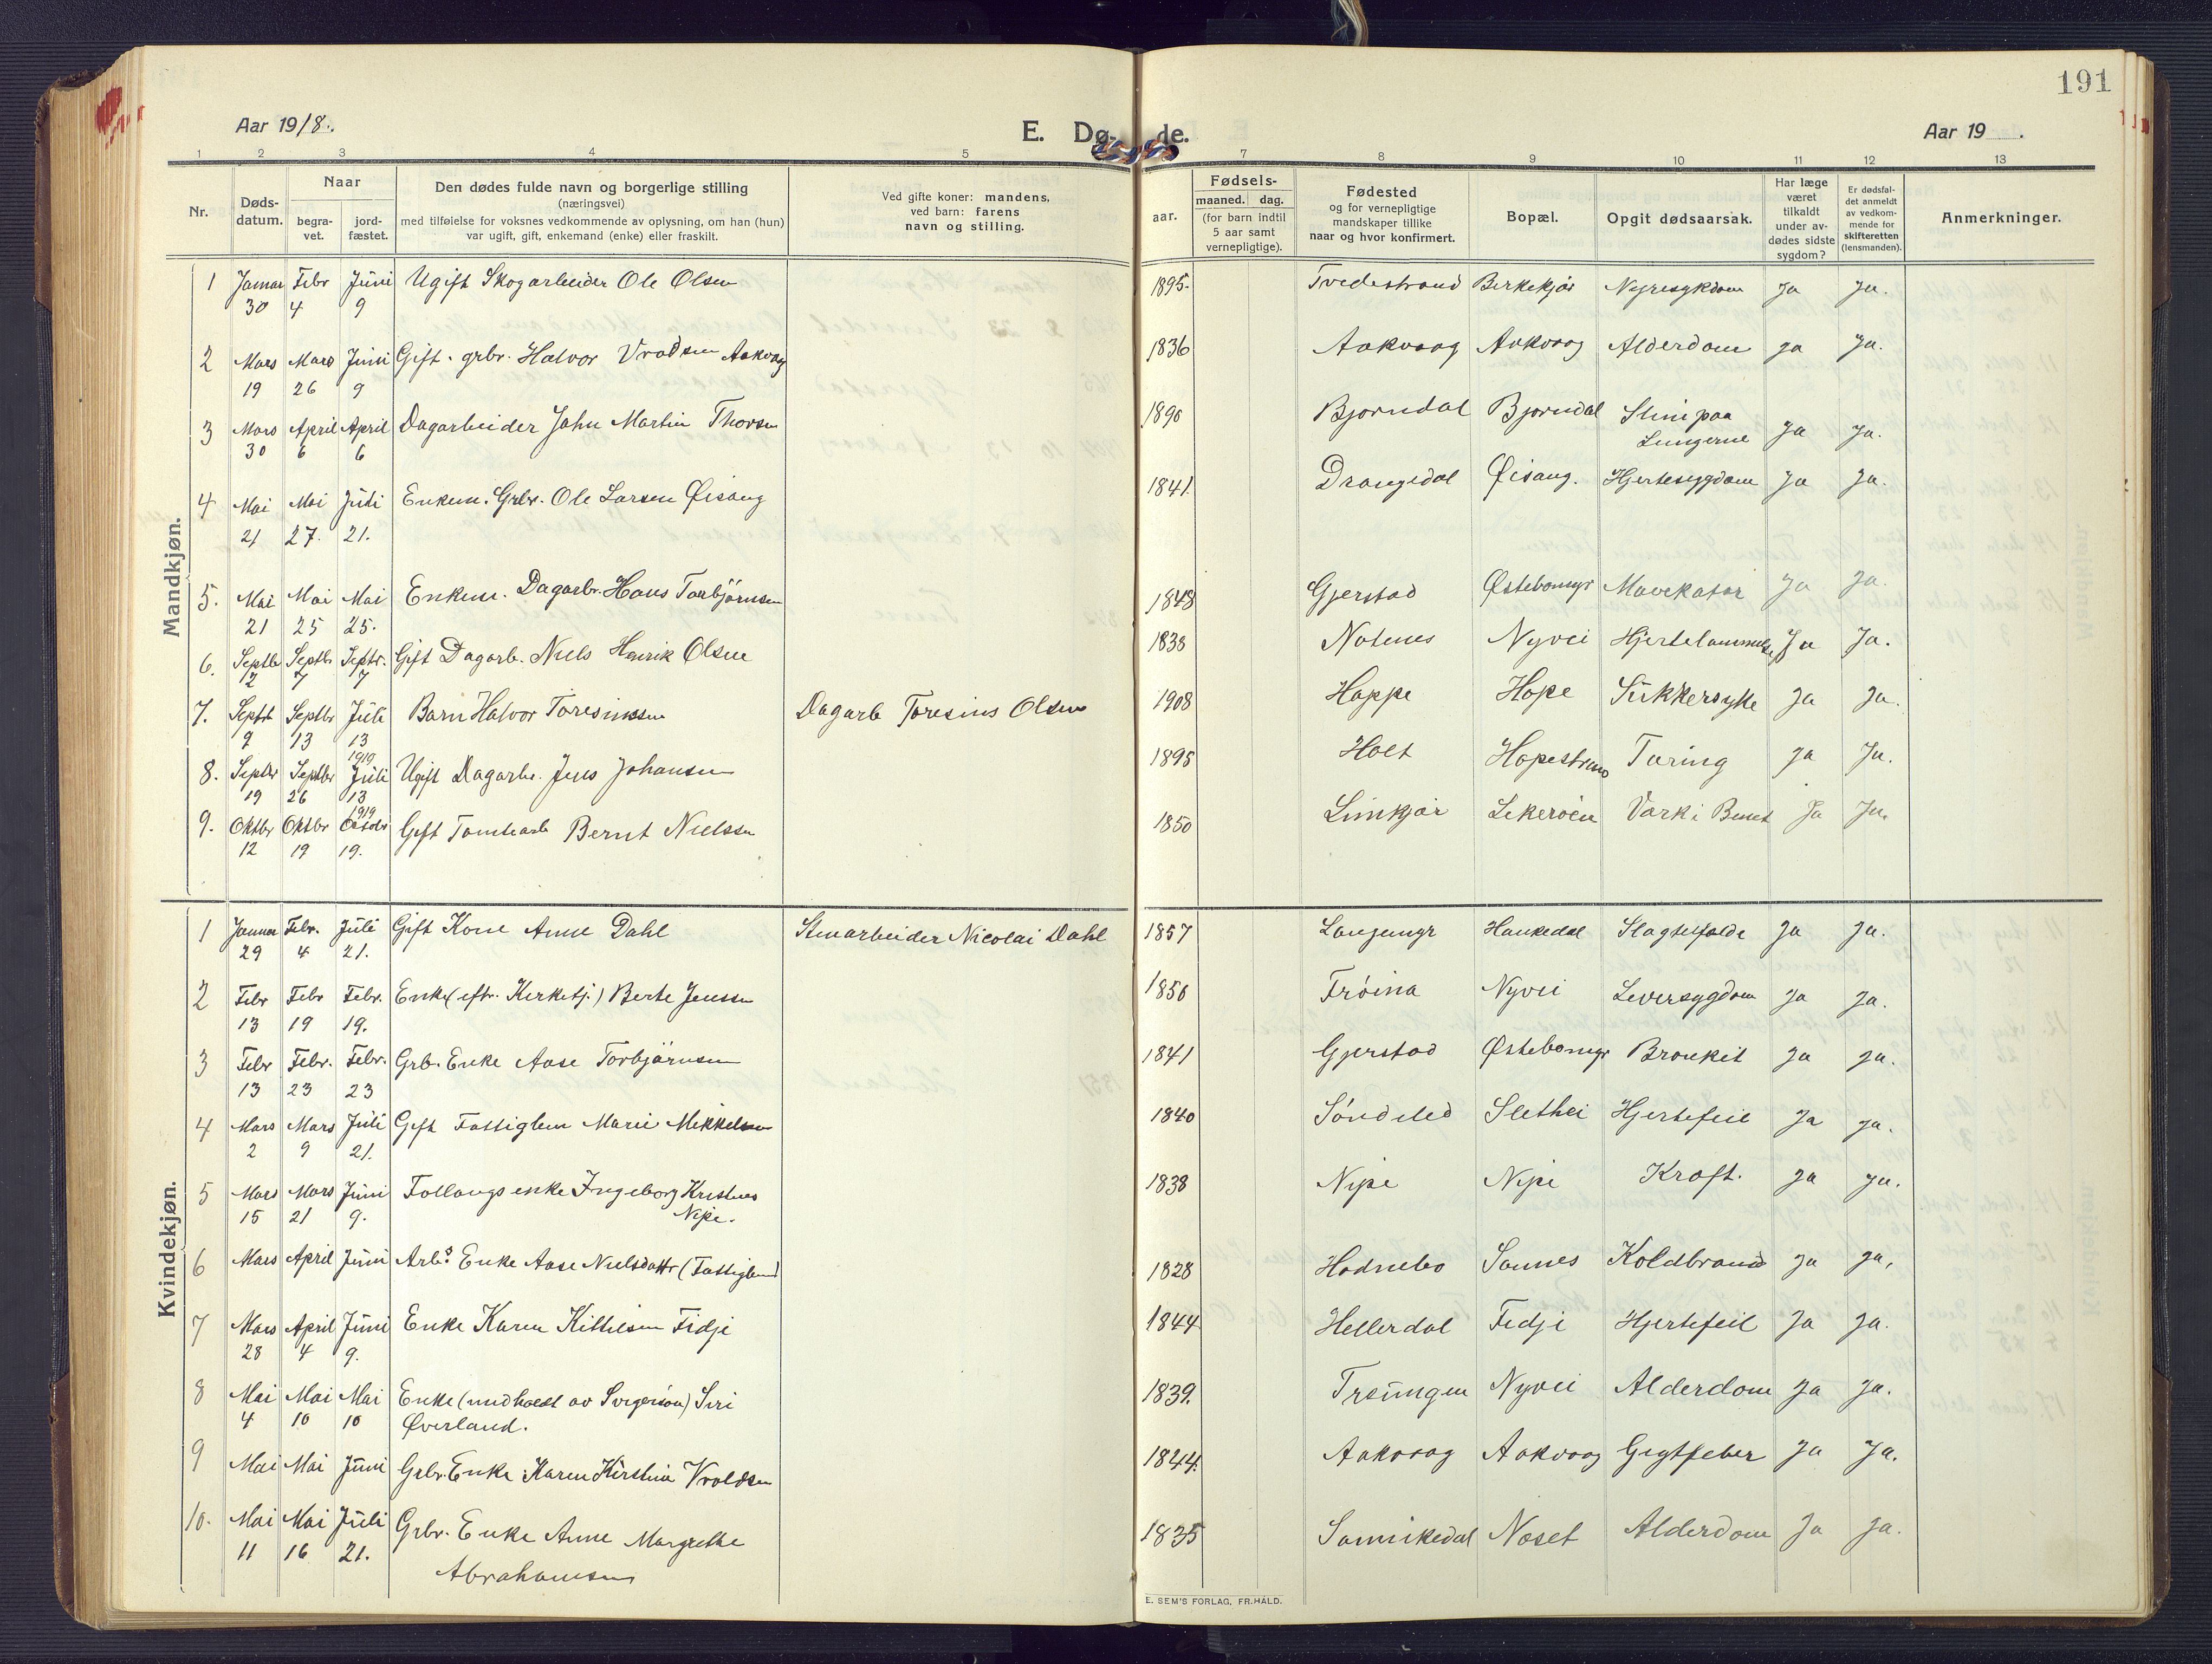 191
Aar 1918.
E. Dø- de.
Aar 19 .
1 2 3 4 5 7 8 9 10 11 12 13
Nr.
Døds-
datum.
Naar
begra-
vet.
jord-
fæstet.
Den dødes fulde navn og borgerlige stilling
(næringsvei)
med tilføielse for voksnes vedkommende av oplysning, om han (hun)
var ugift, gift, enkemand (enke) eller fraskilt.
Ved gifte koner: mandens,
ved barn: farens
navn og stilling.
aar.
Fødsels-
maaned. dag.
(for barn indtil
5 aar samt
vernepligtige).
Fødested
og for vernepligtige
mandskaper tillike
naar og hvor konfirmert.
Bopæl.
Opgit dødsaarsak.
Har læge
været
tilkaldt
under av-
dødes sidste
sygdom?
Er dødsfal-
det anmeldt
av vedkom-
mende for
skifteretten
(lensmanden).
Anmerkninger.
Mandkjøn.
1 Januar Febr Juni Ugift Skogarbeider Ole Olsen 1895. Tvedestrand Birkekjær Nyresykdom Ja Ja.
30 4 9
2 Mars Mars Juni Gift. grbr. Halvor Vroldsen Aakvaag 1836 Aakvaag Aakvaag Alderdom Ja Ja.
19 26 9
3 Mars April April Dagarbeider John Martin Thorsen 1890 Bjorndal Bjorndal Slim paa
30 6 6 Lungerne Ja Ja.
4 Mai Mai Juli Enkem. Grbr. Ole Larsen Øisang 1841. Drangedal Øisang. Hjertesygdom Ja Ja.
21 27. 21.
5. Mai Mai Mai Enkem. Dagarb. Hans Torbjörnsen 1848 Gjerstad Østebomyr Mavekatar Ja Ja.
21 25 25.
6. Septb Septb Septr. Gift Dagarb. Niels Henrik Olsen 1838 Notenes Nyvei Hjertelammelse Ja Ja.
2 7 7
7. Septb Septbr Juli Barn Halvor Toresinssen Dagarb Toresins Olsen 1908 Hoppe Hope Sukkersyke Ja Ja.
9 13 13
1919
8. Septbr Septbr Juli Ugift Dagarb. Jens Johansen 1895 Holt Hopestrand Tæring Ja Ja.
19 26 13
1919
9. Oktbr Oktbr Oktobr Gift Tomtearb Bernt Nielssen 1850 Limkjær Lekeröen Værk i Benet Ja Ja.
12 19 19.
Kvindekjøn.
1 Januar Febr. Juli Gift Kone Anne Dahl Stenarbeider Nicolai Dahl 1857 Langemyr Haukedal Slagtilfælde Ja Ja.
29 4 21.
2 Febr Febr Febr. Enke (eftr. Kirketj.) Berte Jenssen 1850 Fröina Nyvei Leversygdom Ja Ja.
13 19 19.
3 Febr Febr. Febr. Grb. Enke Aase Torbjørnsen 1841 Gjerstad Østebomyr Bronkit Ja Ja.
13 23 23
4 Mars Mars Juli Gift Fattiglem Marie Mikkelsen 1840 Söndeled Slethei Hjertefeil Ja Ja.
2 9 21.
5 Mars Mars Juni Follaugs enke Ingeborg Kristines 1838 Nipe Nipe Kræft. Ja Ja.
15 21 9. Nipe.
6 Mars April Juni Arb.s Enke Aase Nielsdattr (Fattiglem) 1828 Hodnebo Sannes Koldbrand Ja Ja.
7 Mars April Juni Enke Karen Kittilsen Fidje 1844 Hellerdal Fidje Hjertefeil Ja Ja.
28 4 9.
8 Mai Mai Mai Enke (undholdt av Svigersön) Siri 1839. Treungen Nyvei Alderdom Ja Ja.
4 10 10 Øverland.
9 Mai Mai Juni Grbr. Enke Karen Kirstine Vroldsen 1844. Aakvaag Aakvaag Gigtfeber Ja Ja.
10. Mai Mai Juli Grbr. Enke Anne Margrethe 1835 Sannikedal Næset Alderdom Ja Ja.
11 16 21.
Abrahamsen
E. SEM'S FORLAG, FR.HALD.